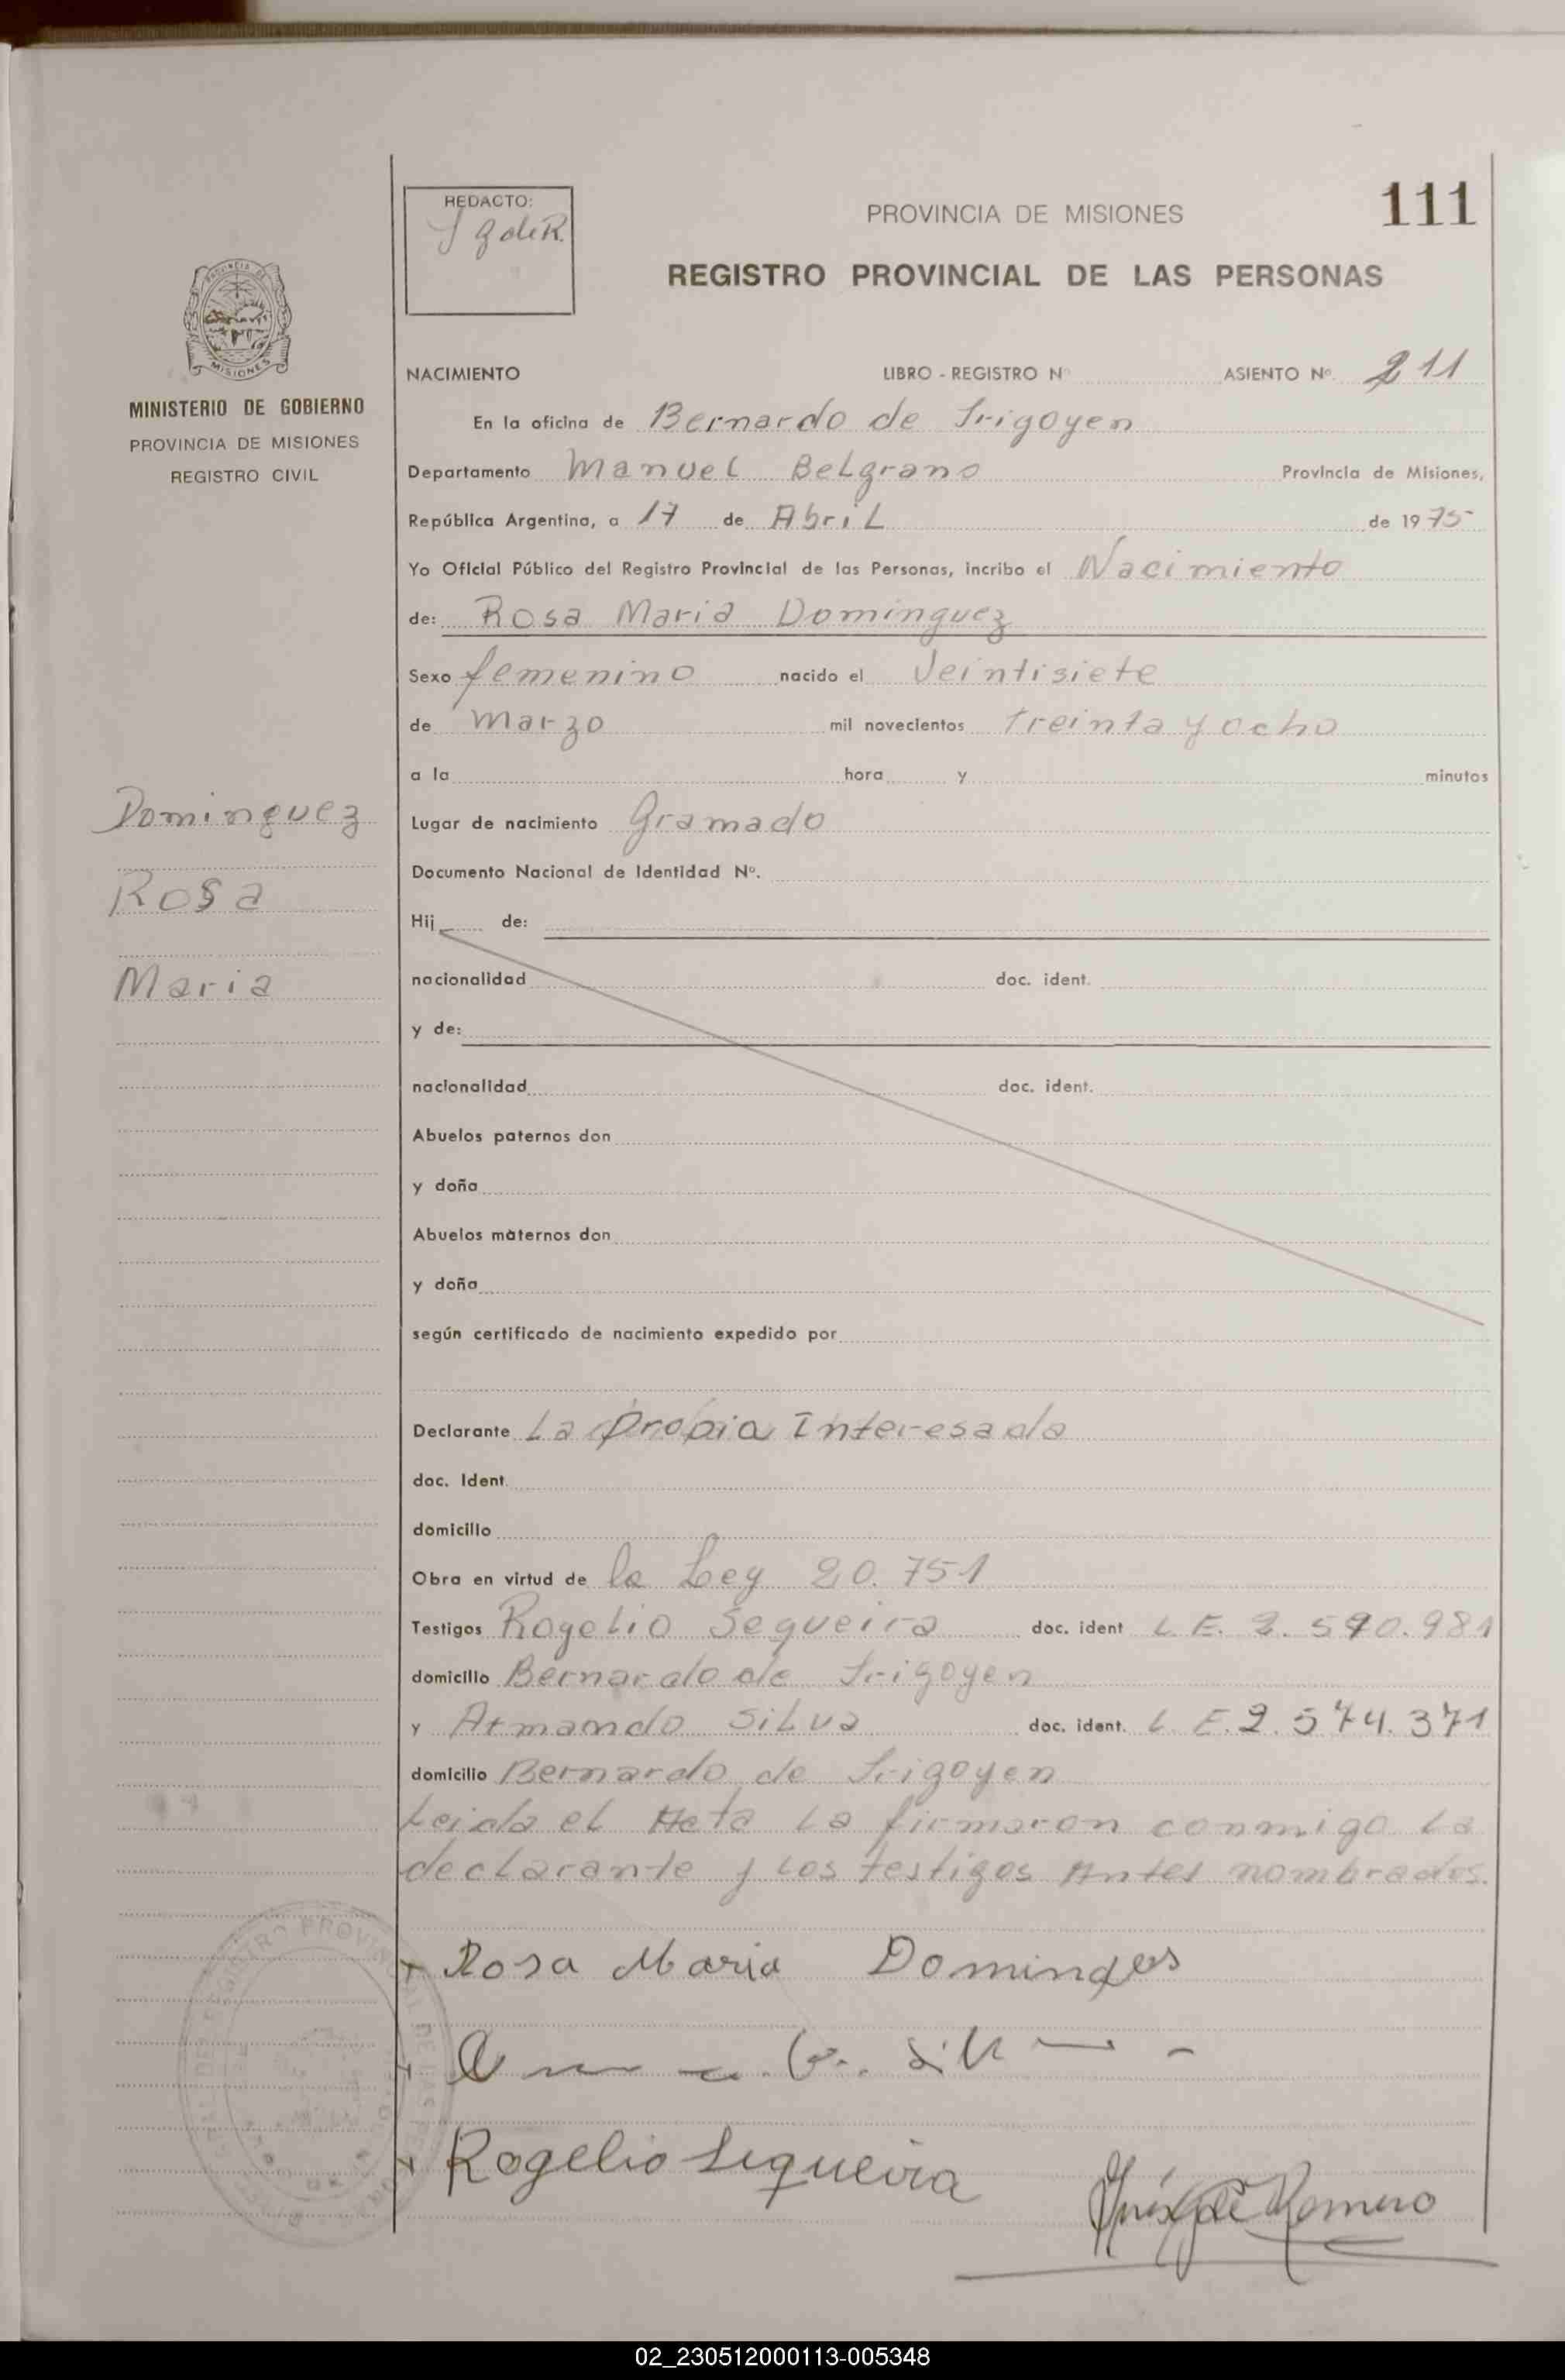 REDACTO:
PROVINCIA DE MISIONES
111
REGISTRO PROVINCIAL DE LAS PERSONAS
MISIONES
MINISTERIO DE GOBIERNO
PROVINCIA DE MISIONES
REGISTRO CIVIL
NACIMIENTO LIBRO - REGISTRO Nº ASIENTO Nº. 211
En la oficina de Bernardo de Irigoyen
Departamento Manuel Belgrano Provincia de Misiones,
República Argentina, a 17 de Abril de 1975
Yo Oficial Público del Registro Provincial de las Personas, incribo el Nacimiento
de: Rosa Maria Dominguez
Sexo femenino nacido el Veintisiete
de Marzo mil novecientos treinta y ocho
a la hora y minutos
Dominguez
Rosa
Maria
Lugar de nacimiento Gramado
Documento Nacional de Identidad Nº.
Hij de:
nacionalidad doc. ident.
y de:
nacionalidad doc. ident.
Abuelos paternos don
y doña
Abuelos maternos don
y doña
según certificado de nacimiento expedido por
Declarante La propia Interesada
doc. Ident.
domicilio
Obra en virtud de la Ley 20.751
Testigos Rogelio Sequeira doc. ident L.E. 2.590.981
domicilio Bernardo de Irigoyen
y Armando Silva doc. ident. L.E. 2.574.371
domicilio Bernardo de Irigoyen
Leida el Acta la firmaron conmigo la
declarante y los testigos Antes nombrados.
Rosa Maria Domingos
Rogelio Sequeira
02_230512000113-005348